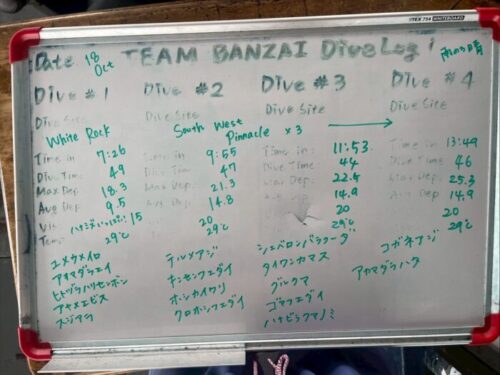 VTEX 754 WHITEBOARD
Date 18 Oct TEAM BANZAI Dive Log! 雨のち晴
Dive #1 Dive #2 Dive #3 Dive #4
Dive Site Dive Site Dive Site Dive Site
White Rock South West Pinnacle x3 →
Time in 7:26 Time in 9:55 Time in 11:53 Time in 13:49
Dive Time 49 Dive Time 47 Dive Time 44 Dive Time 46
Max Dep. 18.3 Max Dep. 21.3 Max Dep. 22.5 Max Dep. 25.3
Avg Dep. 9.5 Avg Dep. 14.8 Avg Dep. 14.9 Avg Dep. 14.9
Vis 15 20 20 20
Temp 29℃ 29℃ 29℃ 29℃
ユメウメイロ テルメアジ シェブロンバラクーダ コガネアジ
アオマダラエイ キンセンフエダイ タイワンカマス アカマダラハタ
ヒトヅラハリセンボン オシカイワリ グルクマ
アヤメエビス クロホシフエダイ ゴマフエダイ
スジアラ ハナビラクマノミ